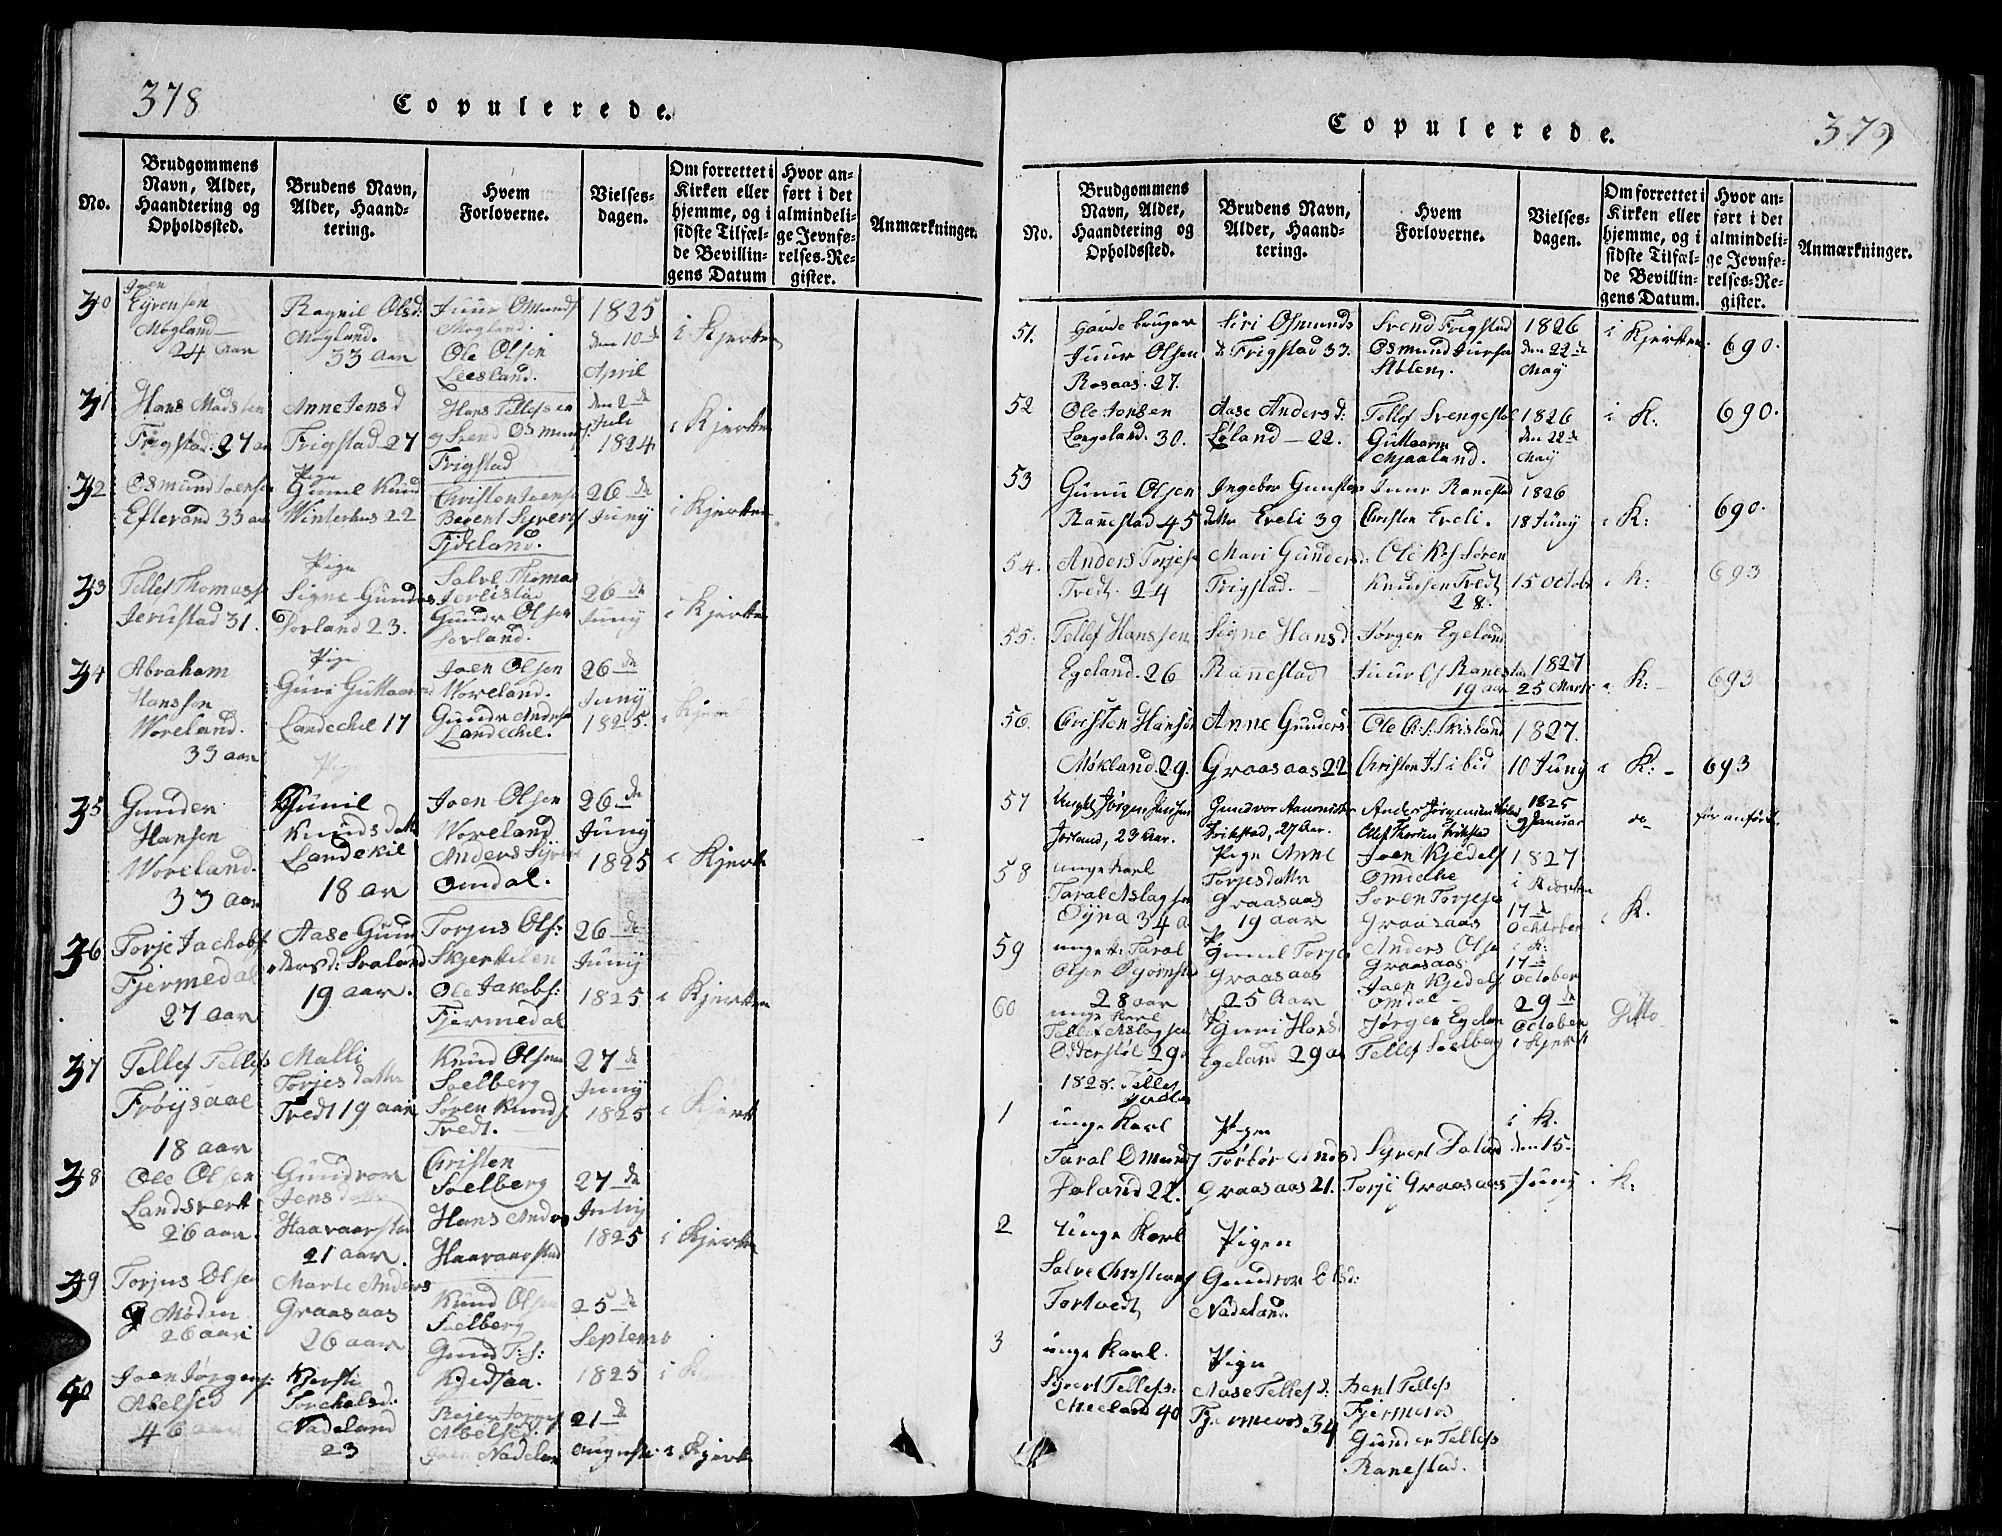 378
Copulerede.
No.
Brudgommens Navn, Alder, Haandtering og Opholdssted.
Brudens Navn, Alder, Haandtering.
Hvem Forloverne.
Vielsesdagen.
Om forrettet i Kirken eller hjemme, og i sidste Tilfælde Bevillingens Datum
Hvor anført i det almindelige Jevnførelses-Register.
Anmærkninger.
30
Joen
Mogland
24 aar
Ragnil Olsd:
Mogland.
33 aar
Juur Omunds
Mogland.
Ole Olsen
Leesland.
1825
den 10de
April
i Kjerken
31
Hans Madssen
Frigstad. 27 aa
Anne Jensd
Frigstad 27
Hans Tellefsen
og Svend Osmunds
Frigstad
den 2de
Juli
1824
i Kjerken
32
Osmund Joensen
Efterand 33 aa
Pige
Gunnil Knud
Winterhus 22
Christen Jensen
Berent Syvers
Fideland.
26de
Juny
i Kjerken
33
Tellef Thomass
Jerustad 31.
Pige
Signe Gunders
Dorland 23.
Salve Thomas
Gundr Olsen
26de
Juny
i Kjerken
34
Abraham
Hanssen
Woreland.
33 aar
Pige
Guri Guttaarm
Landeckel 17
Joen Olsen
Woreland.
Gundr Anders
Landeckel.
26de
Juny
1825.
i Kjerk
35
Gunder
Hansen
Woreland.
33 aar
Pige
Gunil
Knudsdatter
Landekil
18 aar
Joen Olsen
Woreland
Anders Syver
Omdal.
26de
Juny
1825
i Kjerk
36
Torje Jachobs
Fjermedal
27 aar
Aase Gun
dersd: Svaland
19 aar.
Torjus Ols:
Skjerkelen
Ole Jakobs:
Fjermedal
26de
Juny
1825
i Kjerken
37
Tellef Tellefs
Frøysaae
18 aar
Malli
Torjesdatter
Tredt 19 aar
Knud Olsen
Soelberg
Søren Knuds
Tredt.
27de
Juny
1825
i Kjerk
38
Ole Olsen
Landsverk
26 aar.
Gundror
Jensdatter
Haavaarstad
21 aar.
Christen
Soelberg
Hans Anders
Haavaarstad
27de
1825
i Kjerken
39
Torjus Olsen
Moden
26 aar
Marte Anders
Graasaas
26 aar
Knud Olsen
Soelberg
Gund T:s:
Kjedsaa.
25de
Septemb
1825
i Kjerk
40
Joen Jørgens:
Abelsed
46 aar
Kjersti
Torchelsd:
Nadeland
23
Abelsed.
Joen Nadelan
21de
Auguste
i Kjerk
Copulerede.
379
No.
Brudgommens Navn, Alder, Haandtering og Opholdssted.
Brudens Navn, Alder, Haandtering.
Hvem Forloverne.
Vielsesdagen.
Om forrettet i Kirken eller hjemme, og i sidste Tilfælde Bevillingens Datum.
Hvor anført i det almindelige Jevnførelses-Register.
Anmærkninger.
51.
Gaardebruger
Juur Olsen
Rosaas. 27.
Siri Osmunds
d: Frigstad 33.
Svend Frigstad
Osmund Juursen
Stolen.
1826
den 22de
May
i Kjerken.
690.
52
Ole Jensen
Langeland. 30.
Aase Andersd:
Loland - 22.
Tellef Svengestøl
Guttaarm
Mjaaland.
1826
den 22de
May
i K:
690.
53
Gunu Olsen
Rannestad 45
Ingebor Gunsten
datter Eveli 39
Juur Ranestad
Christen Eveli.
1826
18 Juny
i K:
690.
54.
Anders Torjesen
Tredt. 24
Mari Gundersd:
Frigstad.
Ole Kns Søren
Knudsen Tredt
28.
15 Octobr
i K:
693
55.
Tellef Hanssen
Egeland. 26
Signe Hansd:
Rannestad
19 aar
Jørgen Egeland
Juur Os Ranestad
1827
25 Marti
i K:
693
56.
Christen Hansen
Mokland 29.
Anne Gunders:
Graasaas 22
Ole Chs: Skisland
Christen Js ibid
1827.
10 Juny
i K:
693
57
Ungkl Jørgen Jensen
Jorland, 23 Aar.
Gundvor Aanensdtr
Frikstad, 27 Aar.
Anders Jørgensen
Ollef Thoren Frikstad
1825
9 Januar
do
før anført.
58
unge Karl
Taral Aslagsen
Øyna 34 a
Pige Anne
Torjesdatter
Graasaas
19 aar
Joen Kjedels
Omdal
Søren Torjesen
Graasaas
1827
i Kjerken
17de
October
i K.
59
unge K: Taral
Olsen
28 aar
P:
Gunil Torjes
Graasaas
25 Aar
Anders Olsen
Graasaas
Joen Kjedels
Omdal
i K:
17de
October
60
unge Karl
Tellef Aslagsen
Odderstøl 29
Gunri Hans
Egeland 29 aa
Jørgen Egelan
Tellef Soelberg
29de
October
i Kjerk
Ditto
1828. Tellef
1
unge Karl
Taral Omunds
Daland 22.
Pigen
Torbor Andsd
Graasaas 21.
Syvert Daland
Torje Graasaas
i K.
den 15
Juny
i K:
2
unge Karl
Salve Christens
Tortvedt
Pigen
Gundror Olsd:
Nadeland.
3
unge Karl.
Syvert Tellefs:
Meeland 40
Pige
Aase Tellefsd:
Fjermeros 34
Bent Tellefs
Fjermeros
Gunder Tellefs
Ranestad.